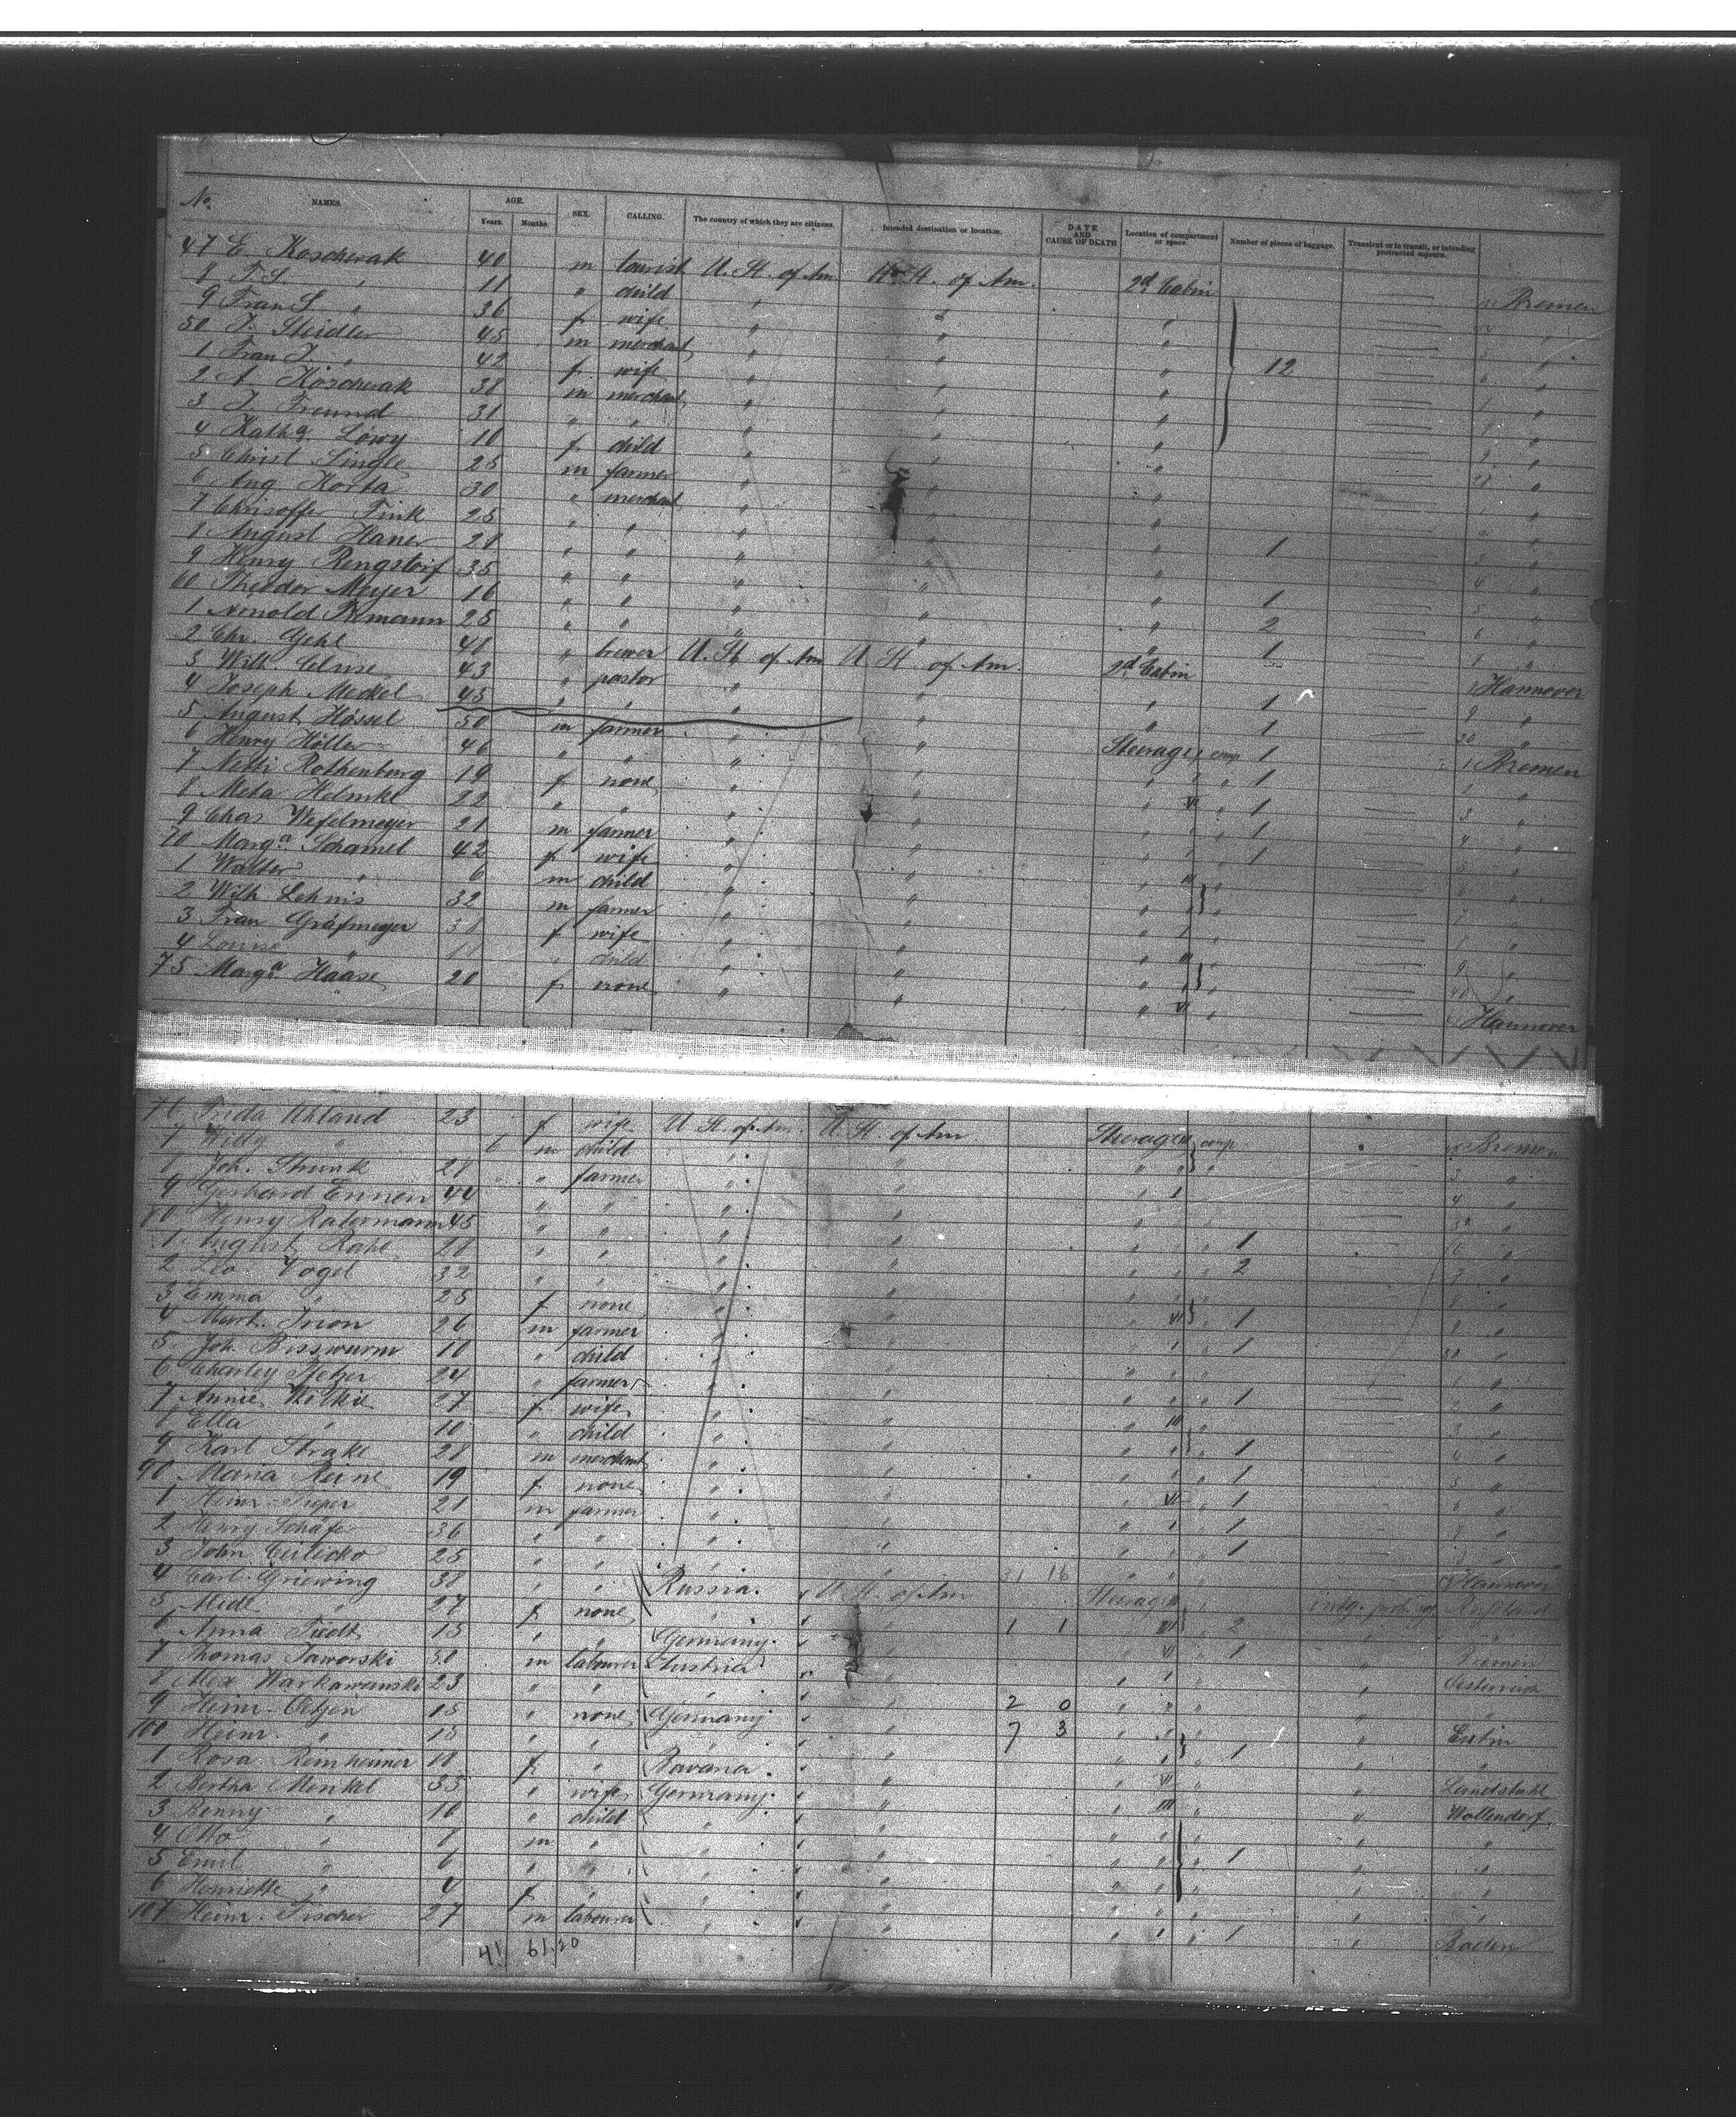 No. NAMES. AGE. Years. Months. SEX. CALLING. The country of which they are citizens. Intended destination or location. DATE AND CAUSE OF DEATH Location of compartment or space. Number of pieces of baggage. Transient or in transit, or intending protracted sojourn.
47 E. Koscherak 40 m tourist U. St. of Am U. St. of Am. 2d Cabin Bremen
8 F. S. " 11 " child " " " "
9 Frau S. " 36 f wife " " " "
50 J. Steidler 45 m merchant " " " "
1 Frau J. " 42 f wife " " " 12 "
2 A. Koscherak 38 m merchant " " " "
3 J. Freund 31 " " " " " "
4 Katha Löwy 10 f child " " " "
5 Christ Single 25 m farmer " " " "
6 Aug Korta 30 " merchant " " " "
7 Chrisoffer Fink 25 " " " " " "
8 August Haner 28 " " " " " 1 "
9 Henry Rengstorf 35 " " " " " "
60 Theodor Meyer 16 " " " " " 1 "
1 Arnold Rimann 25 " " " " " 2 "
2 Chr. Gehl 48 " brewer U. St. of Am U. St. of Am. 2d Cabin 1 "
3 Wilh. Cluse 43 " pastor " " " Hannover
4 Joseph Meckel 45 " " " " " 1 "
5 August Hössel 50 m farmer " " Steerage comp 1 "
6 Henry Höller 46 " " " " " 1 Bremen
7 Netti Rothenburg 19 f none " " VI " 1 "
8 Meta Helmke 22 " " " " " 1 "
9 Chas Wefelmeyer 21 m farmer " " " 1 "
70 Marga Schamel 42 f wife " " III " 1 "
1 Walter " 6 m child " " " "
2 Wilh Lehnis 32 m farmer " " " "
3 Frau Gräfmeyer 38 f wife " " III " "
4 Louise " 18 " child " " " "
75 Marga Haase 20 f none " " VI " Hannover
76 Frida Uhland 23 f wife U. St. of Am. U. St. of Am. Steerage comp Bremen
7 Willy " 6 m child " " " "
8 Joh. Strunk 28 " farmer " " " "
9 Gerhard Ennen 44 " " " " " "
80 Henry Ratermann 45 " " " " " 1 "
1 August Rahe 28 " " " " " 2 "
2 Leo Vogel 32 " " " " " "
3 Emma " 25 f none " " VI " 1 "
4 Mart. Irion 26 m farmer " " " 1 "
5 Joh. Bisswurm 10 " child " " " "
6 Charley Pfetzer 24 " farmer " " " 1 "
7 Annie Wilkie 27 f wife " " III " "
8 Ella " 10 " child " " " 1 "
9 Karl Strake 28 m merchant " " " 1 "
90 Maria Heine 19 f none " " VI " 1 "
1 Heinr. Pieper 21 m farmer " " " 1 "
2 Henry Schäfer 36 " " " " " 1 "
3 John 25 " " " " " Hannover
4 Carl Griewing 38 " " Russia. U. St. of Am 31 16 Steerage
5 " 27 f none " " VI " 2 "
6 Anna Tiedt 15 " " Germany. " 1 1 VI " 1 " Bremen
7 Thomas Jaworski 30 m labourer Austria " " " " Oesterreich
8 Alex Warkawenski 23 " " " " " " " "
9 Heinr. Oetjen 15 " none Germany " 2 0 " " " Eutin
100 Heinr. " 15 " " " " 7 3 " 1 " "
1 Rosa Remheimer 18 f " Bavaria. " VI " " Landstuhl
2 Bertha Menkel 35 " wife Germany. " III " " Wollendorf
3 Benny " 10 " child " " " " "
4 Otto " 8 m " " " " 1 "
5 Emil " 6 " " " " " "
6 Henriette " 4 f " " " " "
107 Heinr. Fischer 27 m labourer " " " 1 " Baden
41 61.20